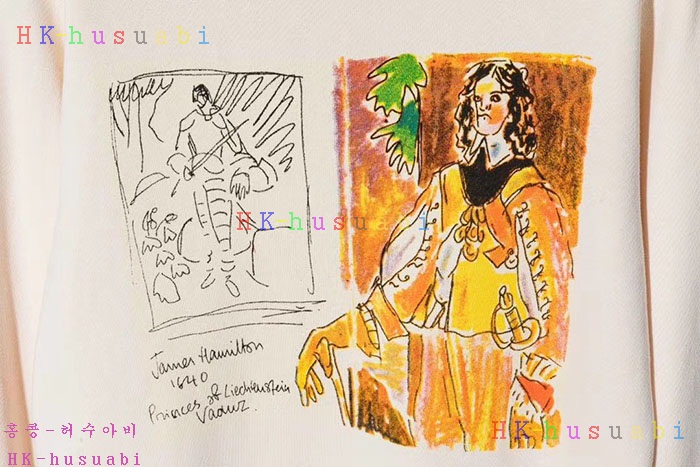 HK-husuabi
HK-husuabi
James Hamilton
1640
Princes of Liechtenstein
Vaduz.
홍콩-허수아비
HK-husuabi
HK-husuabi